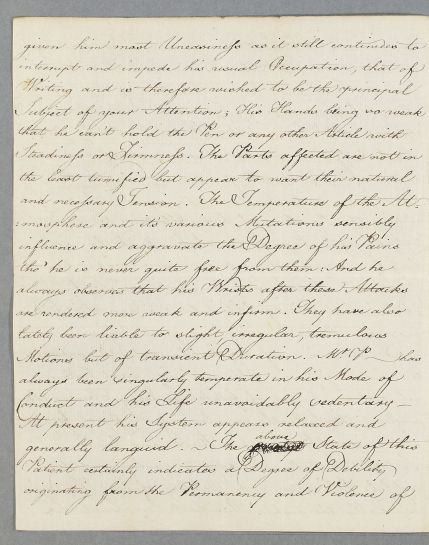 given him most Uneasiness as it still continues to
interrupt and impede his usual Occupation, that of
Writing and is therefore wished to be the principal
Subject of your Attention; His Hands being so weak
that he can't hold the Pen or any other Article with
Steadiness or Firmness. The Parts affected are not in
the least tumified but appear to want their natural
and necessary Tension. The Temperature of the At-
:mosphere and its various Mutations sensibly
influence and aggravate the Degree of his Pains
tho' he is never quite free from them: And he
always observes that his Wrists after these Attacks
are rendered more weak and infirm. They have also
lately been liable to slight, irregular, tremulous
Motions but of transient Duration. Mr. P— has
always been singularly temperate in his Mode of
Conduct and his Life unavoidably sedentary—
At present his System appears relaxed and
generally languid. ~ The above State of this
Patient certainly indicates a Degree of Debility
originating from the Permanency and Violence of